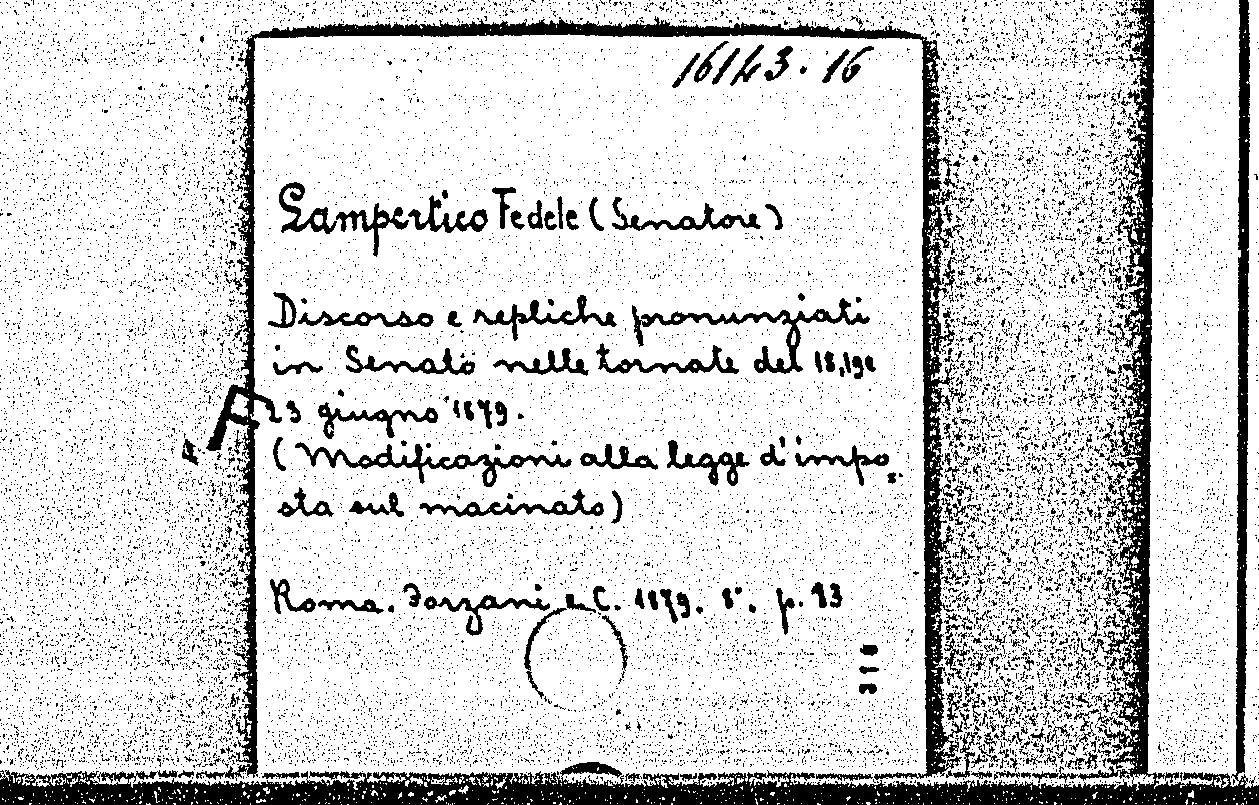 16143.16
Lampertico Fedele (Senatore)
Discorso e repliche pronunziati
in Senato nelle tornate del 18,19 e
23 giugno 1879.
(Modificazioni alla legge d'impo
sta sul macinato)
Roma. Forzani e C. 1879. 8°. p.